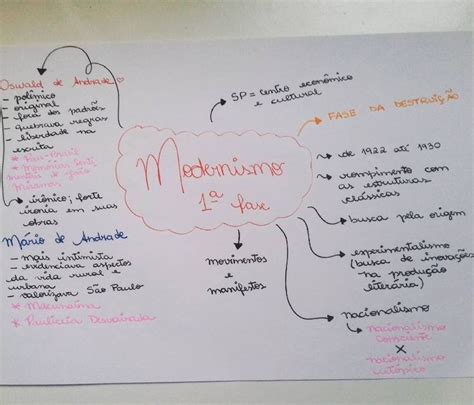 Oswald de Andrade
- polêmico
- original
- fora dos padrões
- quebrava regras
- liberdade na
escrita
* Pau-Brasil
* Memórias Senti
mentais de João
Miramar
→ irônico; forte
ironia em suas
obras
Mário de Andrade
- mais intimista
- evidenciava aspectos
da vida rural e
urbana
- valorizava São Paulo
* Macunaíma
* Paulicéia Desvairada
Modernismo
1ª fase
SP = centro econômico
e cultural
FASE DA DESTRUIÇÃO
de 1922 até 1930
rompimento com
as estruturas
clássicas
busca pela origem
experimentalismo
(busca de inovações
na produção
literária)
nacionalismo
nacionalismo
consciente
X
nacionalismo
utópico
movimentos
e
manifestos